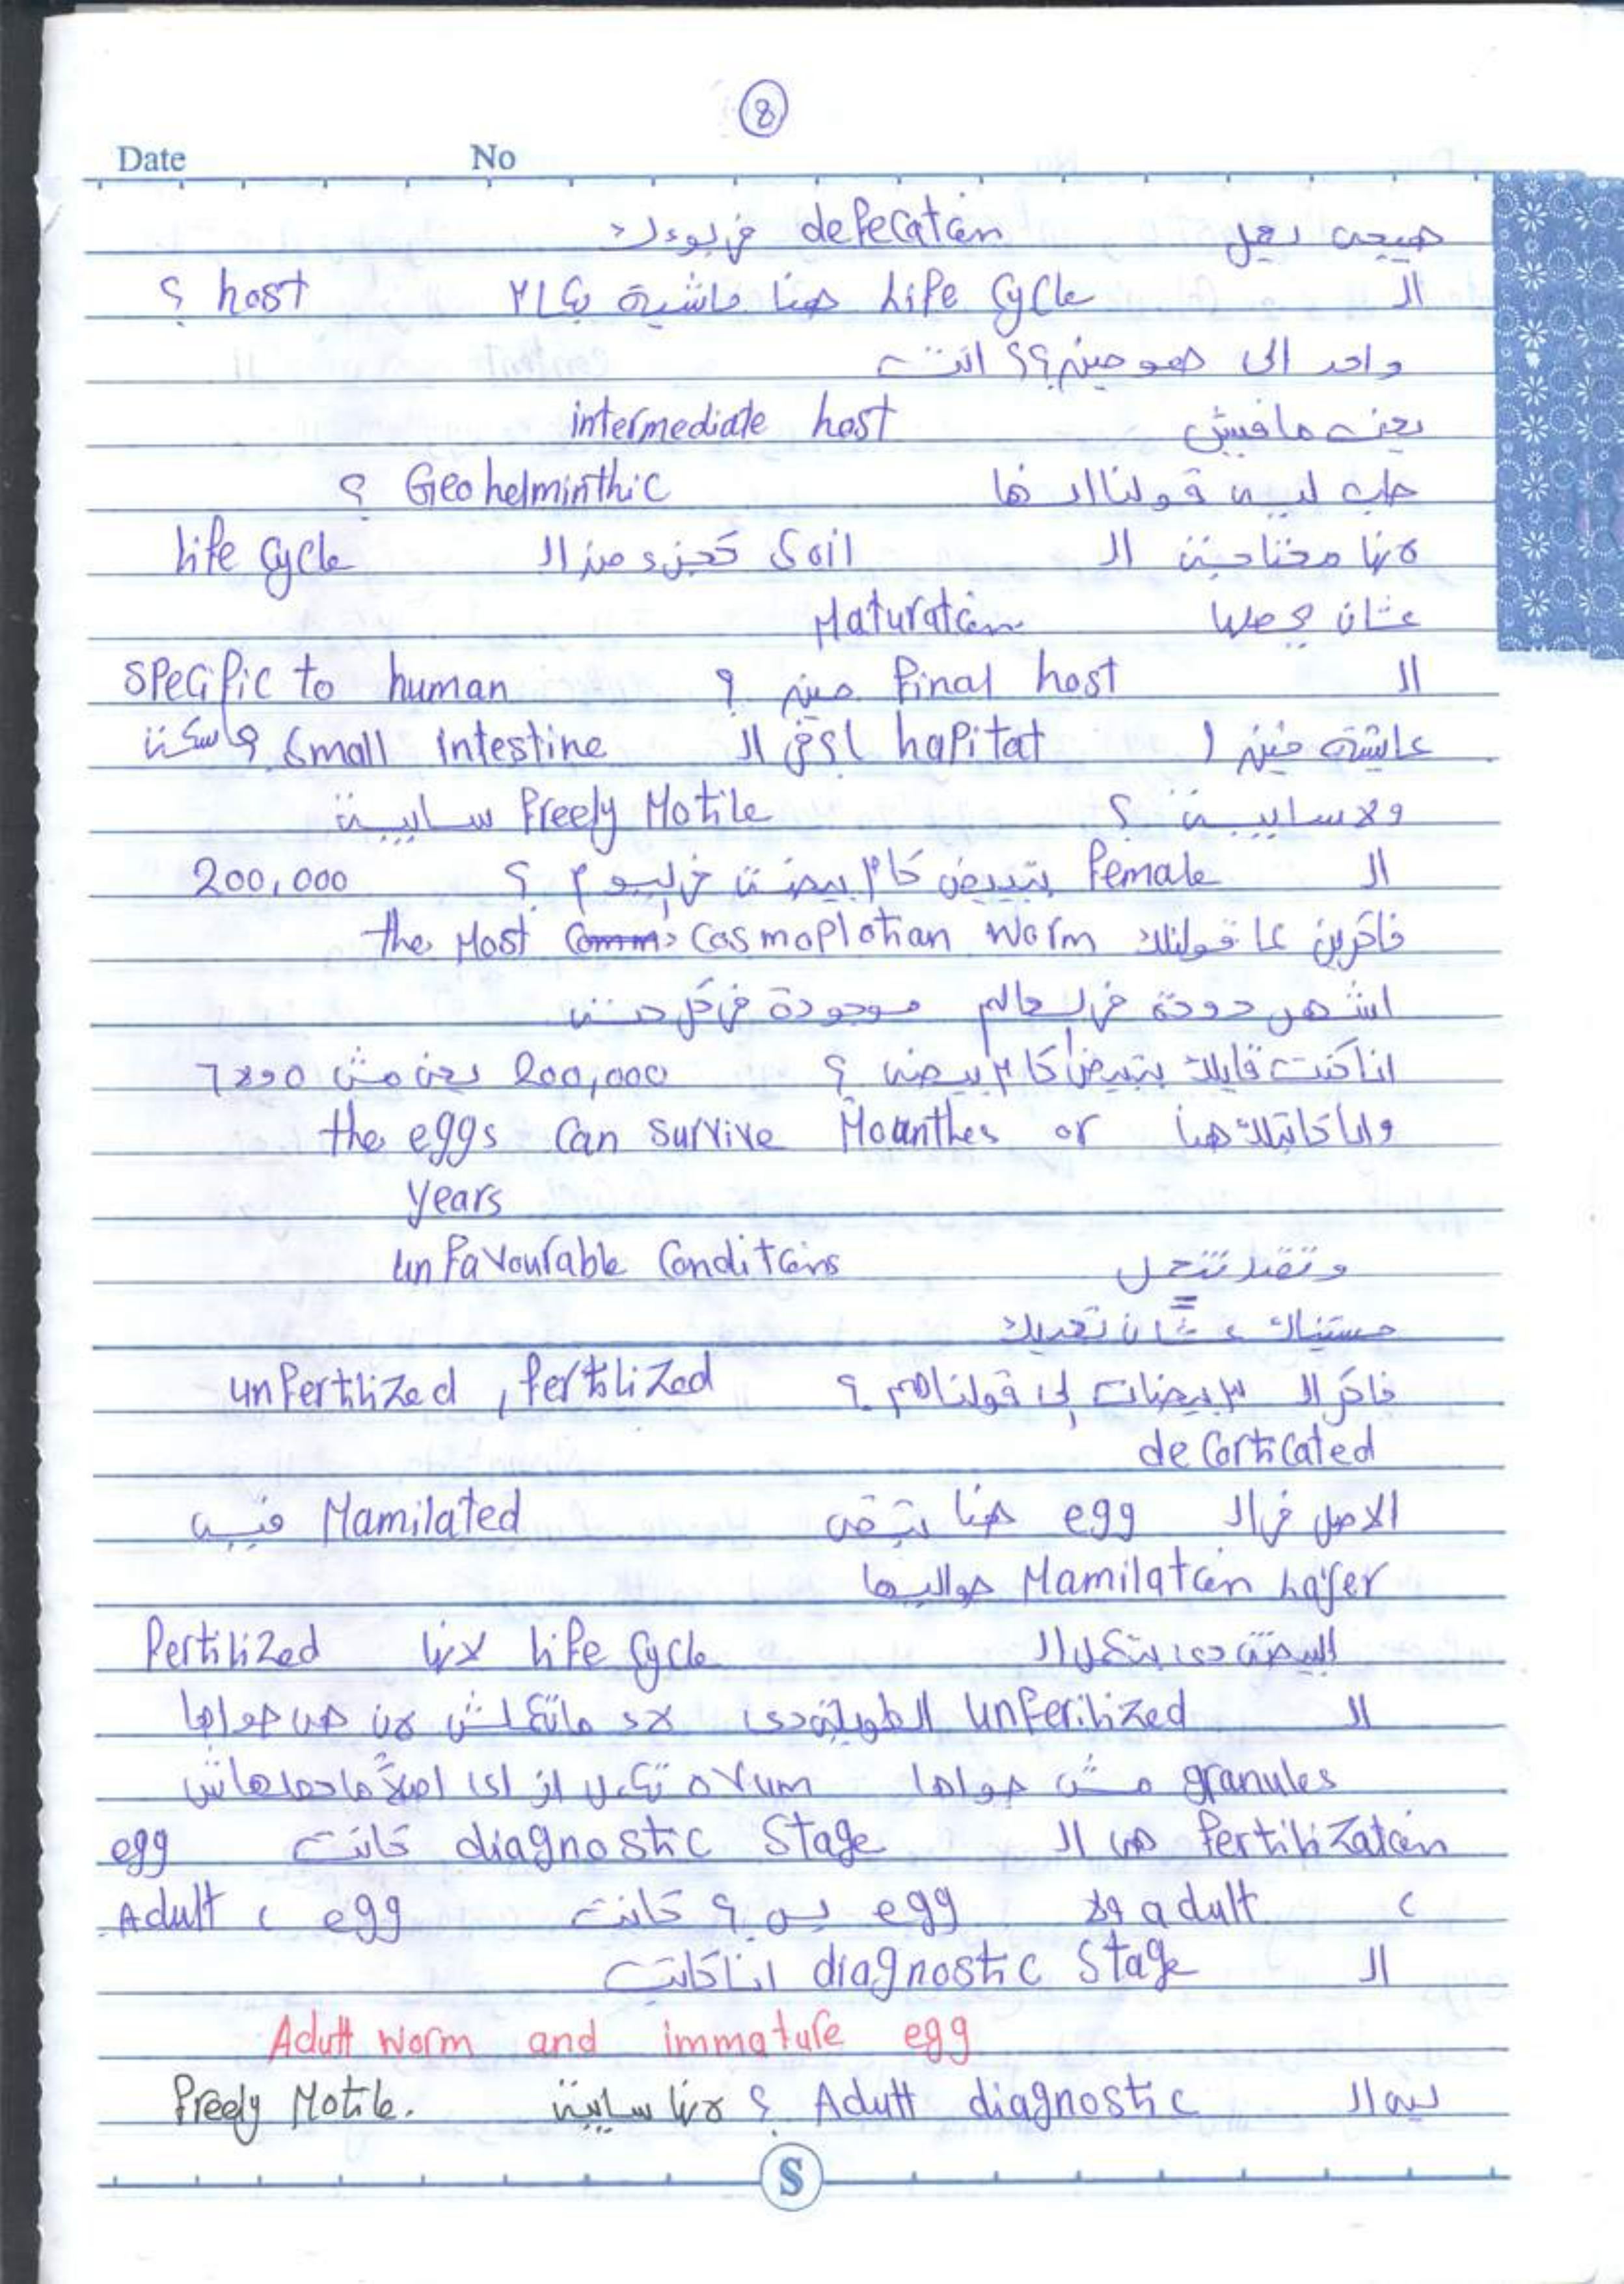 8
Date No
هييجى يعمل defecation فى بوءك
الـ Life Cycle هنا ماشية بكام host ؟
واحد الى هو مين؟؟ انت
يعنى مافيش intermediate host
طب ليه قولنالها Geohelminthic ؟
لانها محتاجة الـ Soil كجزء من الـ Life Cycle
عشان يحصلها Maturation
الـ Final host مين ؟ Specific to human
عايشة فين ! hapitat بتاع الـ Small intestine ماسكة
ولا سايبة ؟ Freely Motile سايبة
الـ Female بتبيض كام بيضة فى ليوم ؟ 200,000
فاكرين لما قولتلك the Most Cosmoplotian Worm
اشهر دودة فى لعالم موجودة فى كل حتة
انا كنت قايلك بتبيض كام بيضه ؟ 200,000 يعنى مش
وانا كاتبلك هنا the eggs Can Survive Mounthes or
years
وتقدر تتحمل unFavourable Conditions
مستنياك عشان تعديك
فاكر الـ ٣ بيضات إلى قولناهم ؟ unFertilized , Fertilized
deCorticated
الاصل فى الـ egg هنا بتبقى Mamilated فيه
Mamilation Layer حواليها
البيضة دى بتكمل الـ Life Cycle لانها Fertilized
الـ unFerilized الطويلة دى لاء ماتكملش لان هى جواها
granules مش جواها ovum تكمل ازاى اصلاً ماحصلهاش
Fertilization هى الـ diagnostic Stage كانت egg
، adult ولا egg بس ؟ كانت egg ، Adult
الـ diagnostic Stage انا كاتب
Adult worm and immature egg
ليه الـ Adult diagnostic ؟ لانها سايبة Freely Motile.
S